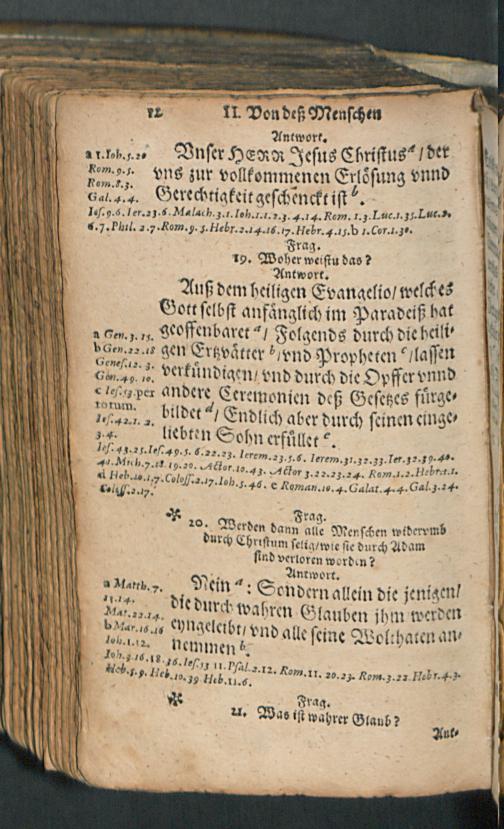 12 II. Von deß Menschen
Antwort.
a 1. Ioh. 5. 20
Rom. 9. 5.
Rom. 8. 3.
Gal. 4. 4.
Vnser HERR Jesus Christus a / der
vns zur vollkommenen Erlösung vnnd
Gerechtigkeit geschenckt ist b.
Ies. 9. 6. Ier. 23. 6. Malach. 3. 1. Ioh. 1. 1. 2. 3. 4. 14. Rom. 1. 3. Luc. 1. 35. Luc. 2.
6. 7. Phil. 2. 7. Rom. 9. 5. Hebr. 2. 14. 16. 17. Hebr. 4. 15. b 1. Cor. 1. 30.
Frag.
19. Woher weistu das?
Antwort.
Auß dem heiligen Evangelio / welches
Gott selbst anfänglich im Paradeiß hat
geoffenbaret a / Folgends durch die heili-
gen Ertzvätter b / vnd Propheten c / lassen
verkündigen / vnd durch die Opffer vnnd
andere Ceremonien deß Gesetzes fürge-
bildet d / Endlich aber durch seinen einge-
liebten Sohn erfüllet e.
a Gen. 3. 15.
b Gen. 22. 18
Genes. 12. 3.
Gen. 49. 10.
c Ies. 53. per
totum.
Ies. 42. 1. 2.
3. 4.
Ies. 43. 25. Ies. 49. 5. 6. 22. 23. Ierem. 23. 5. 6. Ierem. 31. 32. 33. Ier. 32. 39. 40.
41. Mich. 7. 18. 19. 20. Actor. 10. 43. Actor 3. 22. 23. 24. Rom. 1. 2. Hebr. 1. 1.
d Heb. 10. 1. 7. Coloss. 2. 17. Ioh. 5. 46. e Roman. 10. 4. Galat. 4. 4. Gal. 3. 24.
Coloss. 2. 17.
Frag.
20. Werden dann alle Menschen widerumb
durch Christum selig / wie sie durch Adam
sind verloren worden?
Antwort.
Nein a : Sondern allein die jenigen /
die durch wahren Glauben jhm werden
eyngeleibt / vnd alle seine Wolthaten an-
nemmen b.
a Matth. 7.
13. 14.
Mat. 22. 14.
b Mar. 16. 16
Ioh. 1. 12.
Ioh. 3. 16. 18. 36. Ies. 53 11. Psal. 2. 12. Rom. 11. 20. 23. Rom. 3. 22 Hebr. 4. 3.
Heb. 5. 9. Heb. 10. 39 Heb. 11. 6.
Frag.
21. Was ist wahrer Glaub?
Ant-